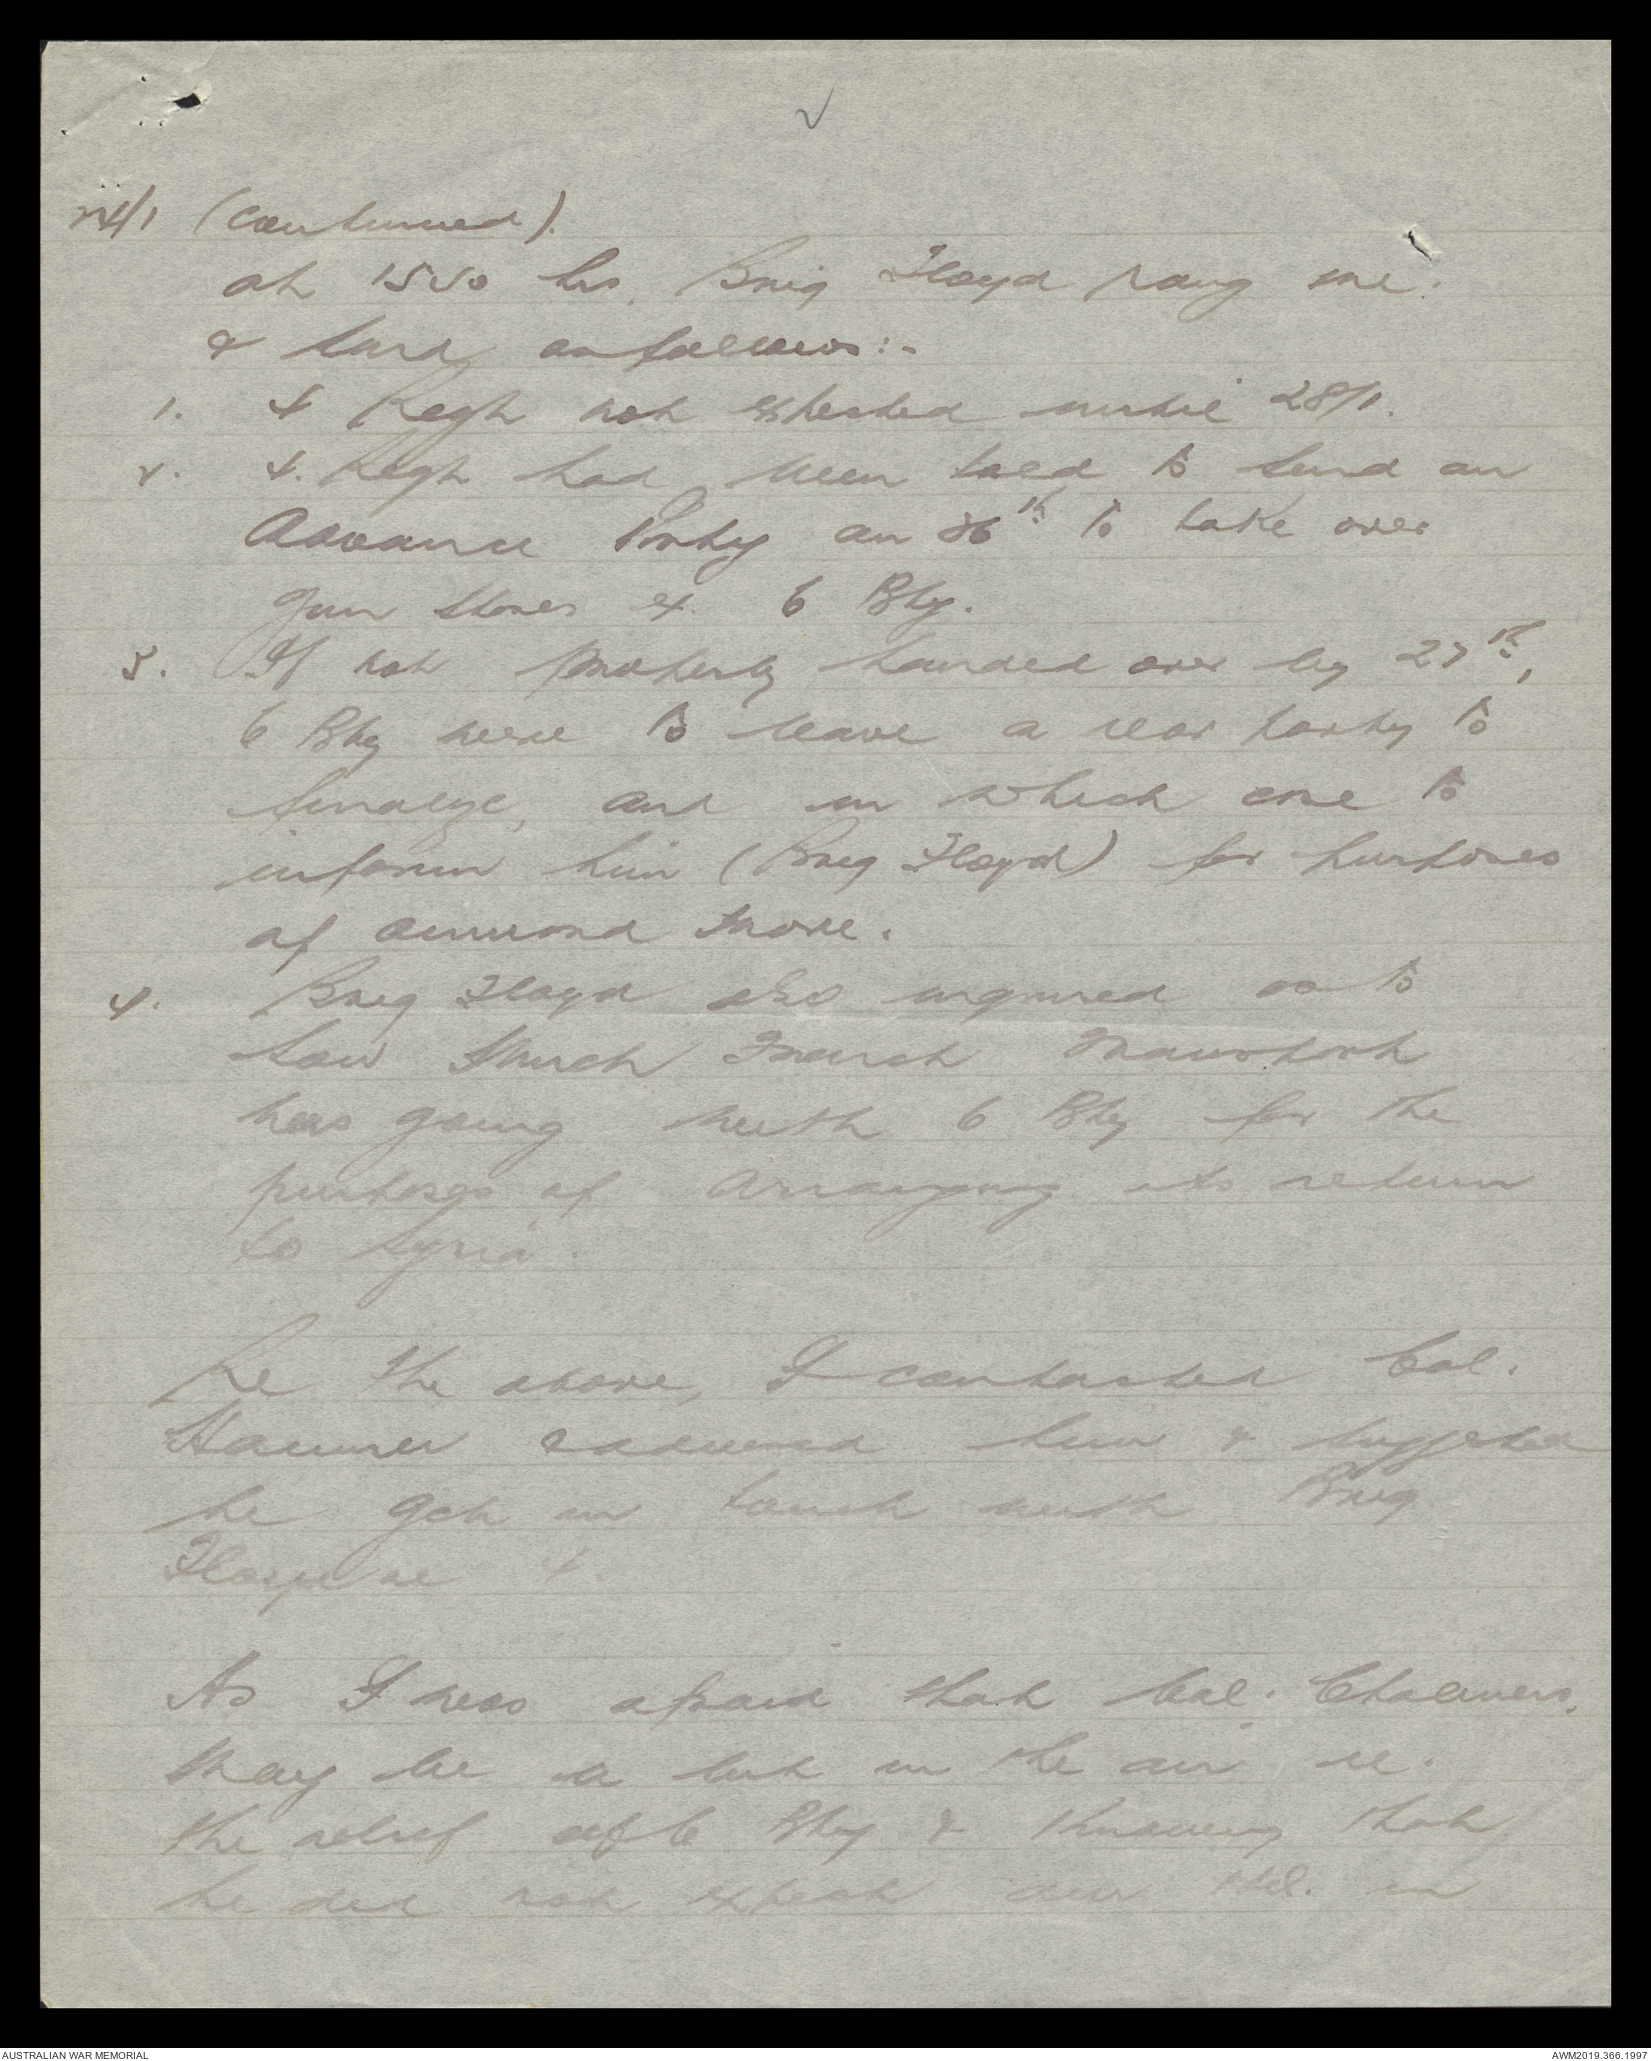 24/1 (continued).
at 1530 hrs. Brig Floyd rang me
& said as follows:-
1. 4 Regt not expected until 28/1.
2. 4. Regt had been told to send an
Advance Party on 26th to take over
gun stores ex 6 Bty.
3. If not properly handed over by 27th,
6 Bty were to leave a rear party to
finalize, and in which case to
inform him (Brig Floyd) for purposes
of onward move.
4. Brig Floyd also inquired as to
how much French Transport
was going with 6 Bty for the
purposes of arranging its return
to Syria.
Re the above, I contacted Col.
& advised him & suggested
he get in touch with Brig
Floyd re 4.
As I was afraid that Col. Chalmers,
may be a bit in the air re.
the relief of 6 Bty & knowing that
he did not expect our in
AUSTRALIAN WAR MEMORIAL
AWM2019.366.1997